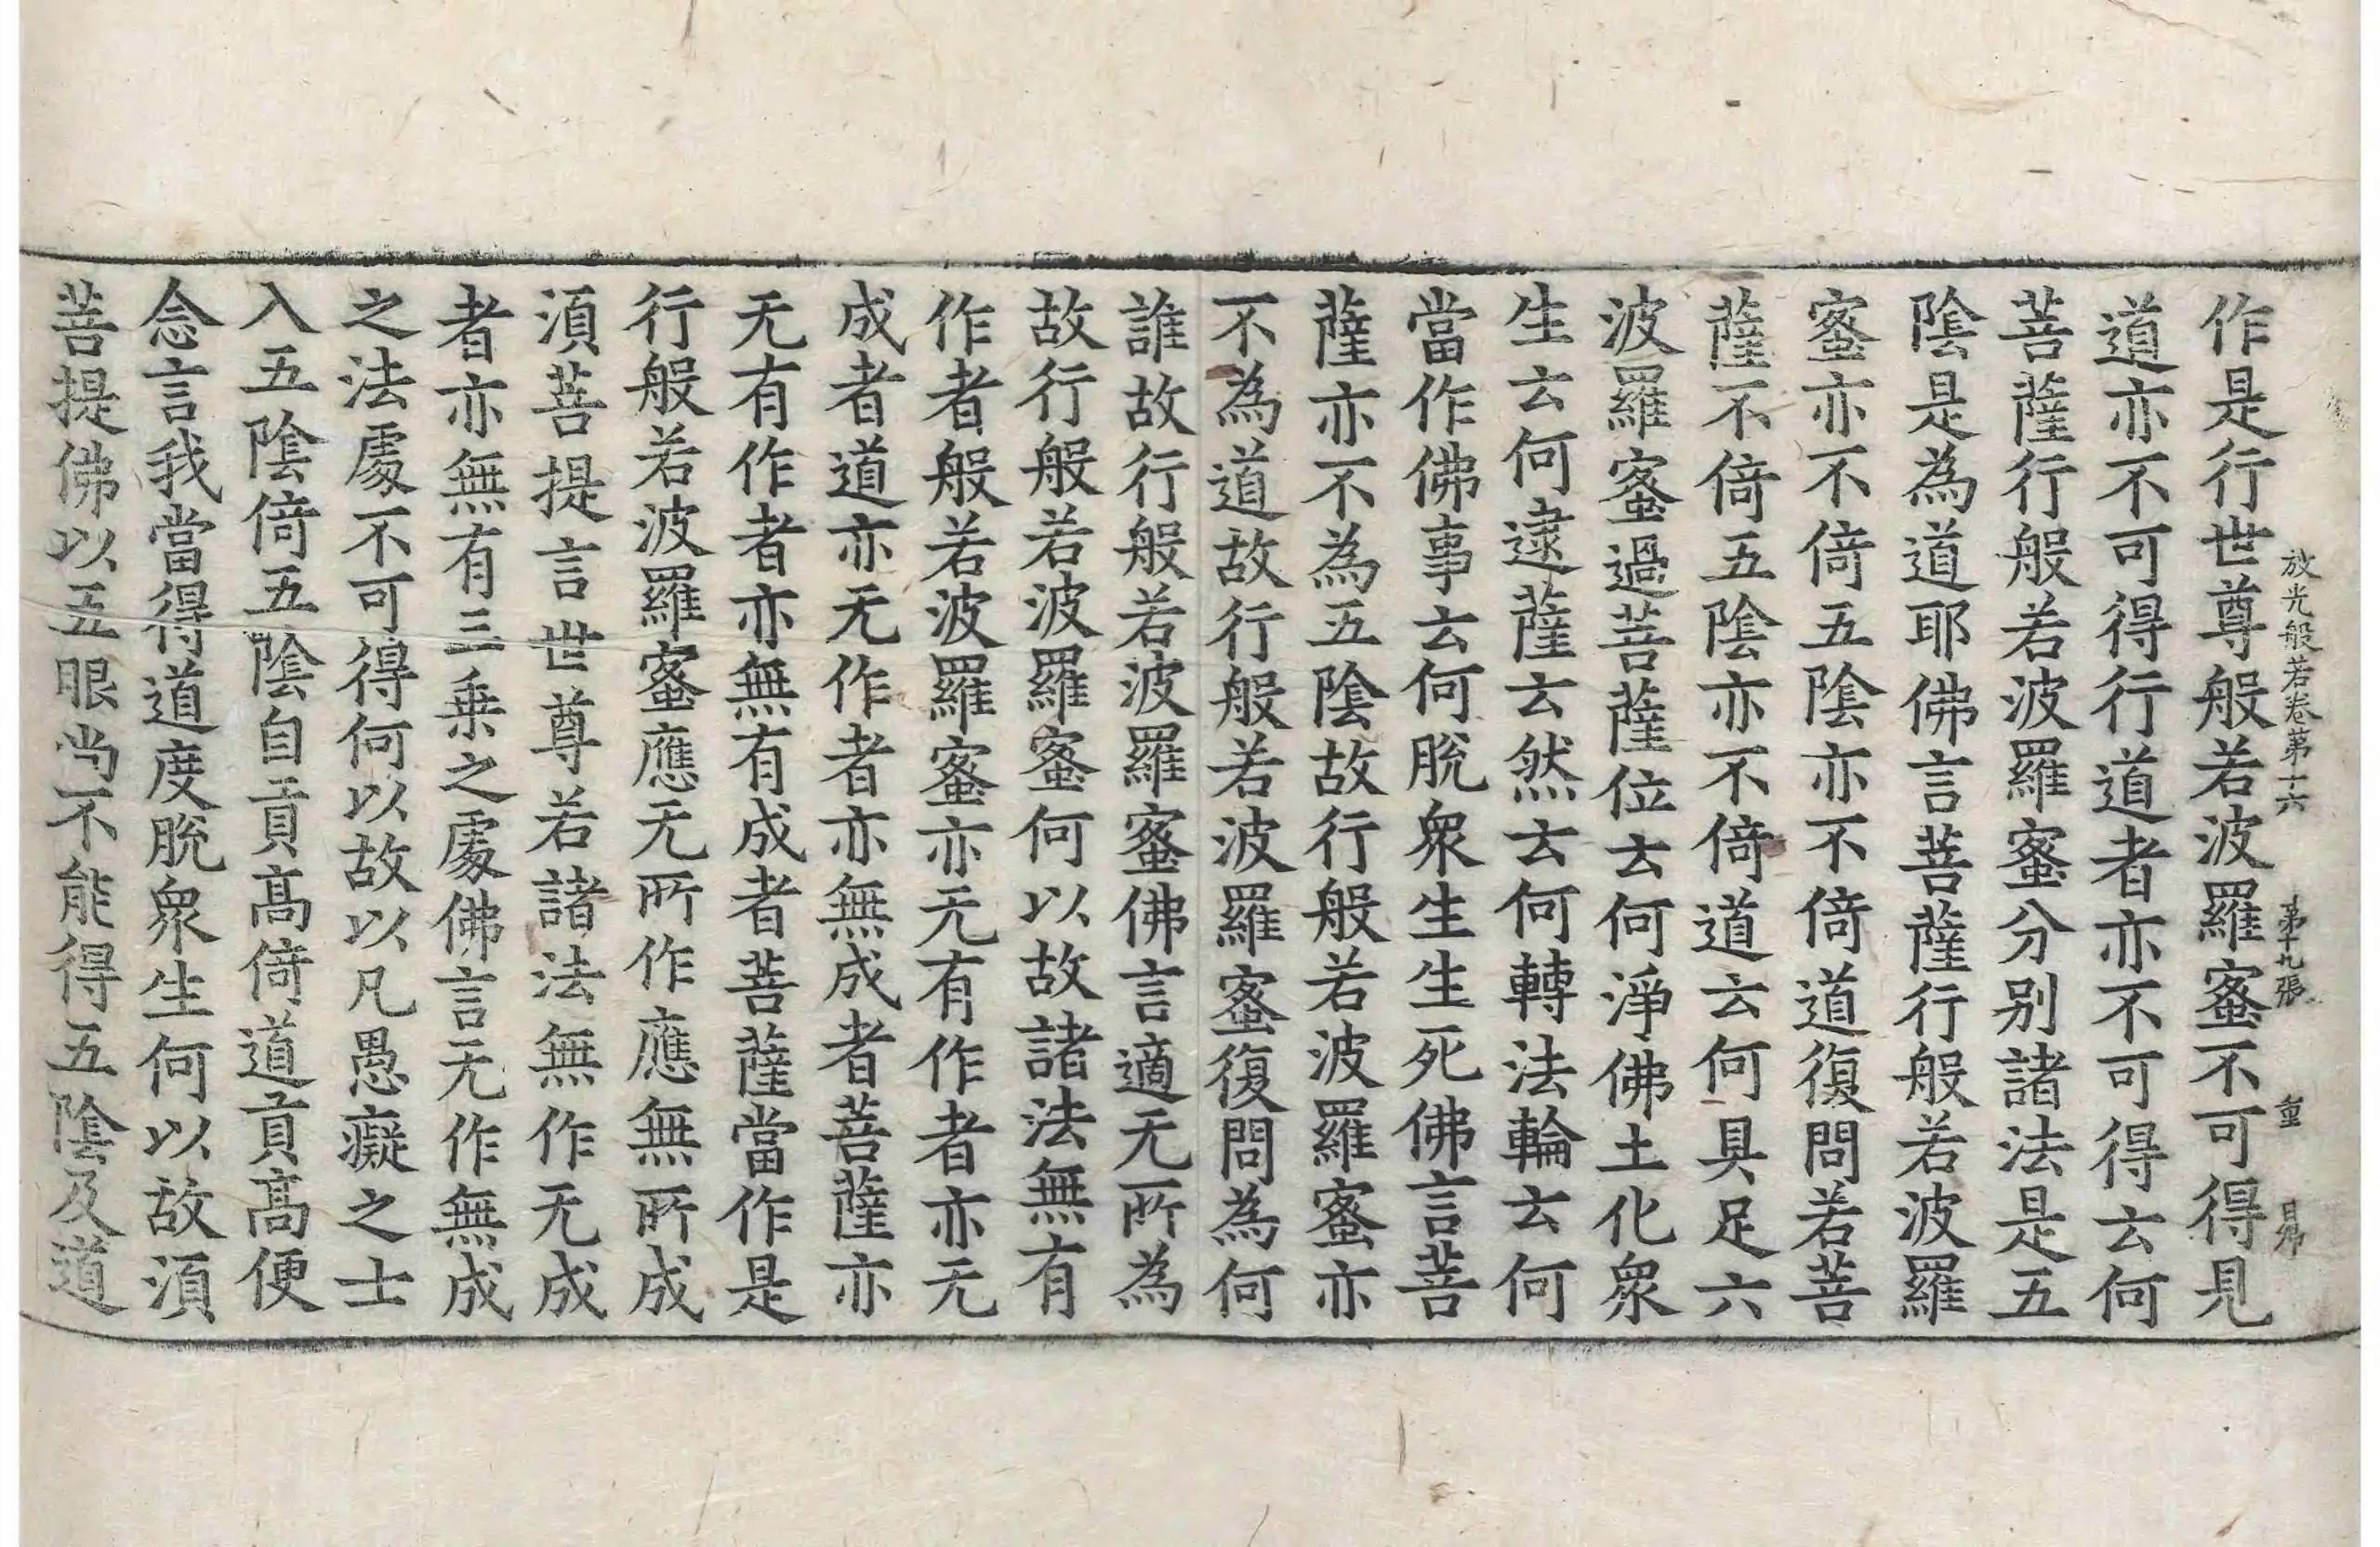 放光般若卷第十六 第十九張 重
作是行世尊般若波羅蜜不可得見
道亦不可得行道者亦不可得云何
菩薩行般若波羅蜜分别諸法是五
陰是為道耶佛言菩薩行般若波羅
蜜亦不倚五陰亦不倚道復問若菩
薩不倚五陰亦不倚道云何具足六
波羅蜜過菩薩位云何淨佛土化衆
生云何逮薩云然云何轉法輪云何
當作佛事云何脫衆生生死佛言菩
薩亦不為五陰故行般若波羅蜜亦
不為道故行般若波羅蜜復問為何
誰故行般若波羅蜜佛言適无所為
故行般若波羅蜜何以故諸法無有
作者般若波羅蜜亦无有作者亦无
成者道亦无作者亦無成者菩薩亦
无有作者亦無有成者菩薩當作是
行般若波羅蜜應无所作應無所成
湏菩提言世尊若諸法無作无成
者亦無有三乗之處佛言无作無成
之法處不可得何以故以凡愚癡之士
入五陰倚五陰自貢高倚道貢高便
念言我當得道度脫衆生何以故湏
菩提佛以五眼尚不能得五陰及道